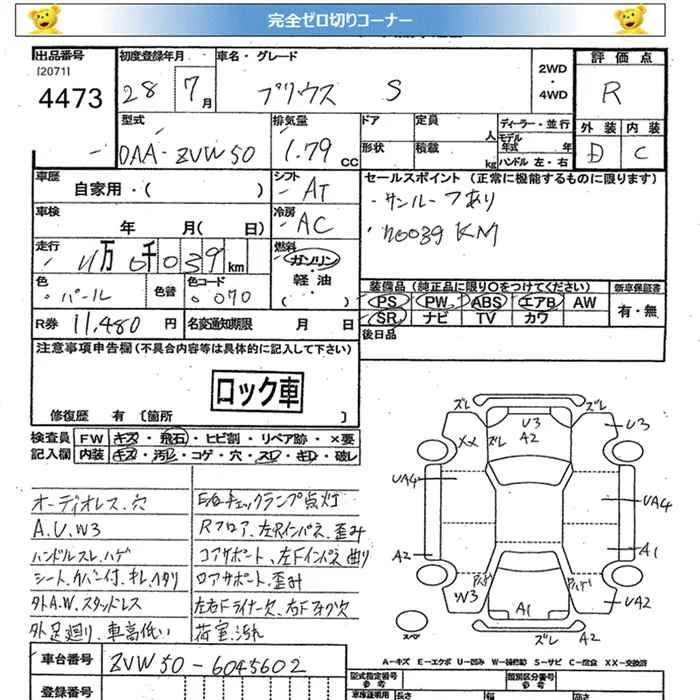 完全ゼロ切りコーナー
出品番号
[2071]
4473
初度登録年月
28 7月
車名・グレード
プリウス S
2WD
・
4WD
評価点
R
外装 内装
D C
型式
DAA-ZVW50
排気量
1.79 CC
ドア
形状
定員
人
積載
kg
ディーラー・並行
モデル
年式 年
ハンドル 左・右
車歴
自家用・( )
シフト
AT
車検
年 月( 日)
冷房
AC
走行
11万0千039km
燃料
ガソリン
・
軽油
( )
色
パール
色替
色コード
070
R券 11,480 円
名変通知期限 月 日
セールスポイント(正常に機能するものに限ります)
・サンルーフあり
・110039KM
装備品(純正品に限り○をつけてください)
新車保証書
PS PW ABS エアB AW
SR ナビ TV カワ
有・無
後日品
注意事項申告欄(不具合内容等は具体的に記入して下さい)
ロック車
修復歴 有 [箇所 ]
検査員
記入欄
FW キズ・飛石・ヒビ割・リペア跡・×要
内装 キズ・汚レ・コゲ・穴・スレ・キレ・破レ
オーディオレス、穴
A.U.W3
ハンドルスレ、ハゲ
外A.W.スタッドレス
外足廻り、車高低い
E/Gチェックランプ点灯
Rフロア、左Rインパネ、歪み
コアサポート、左Fインパネ曲り
ロアサポート、歪み
左右Fライナー欠、右Fフォグ欠
荷室、汚れ
ズレ
ズレ
XX
ズレ
U3
A2
U3
UA4
UA4
A2
A1
W3
UA2
A1
ズレ A2
スペア
A-キズ E-エクボ U-凹み W-補修跡 S-サビ C-腐食 XX-交換済
車台番号 ZVW50-6045602
登録番号
型式指定番号
類別区分番号
参考
車庫証明用 長さ
幅
高さ